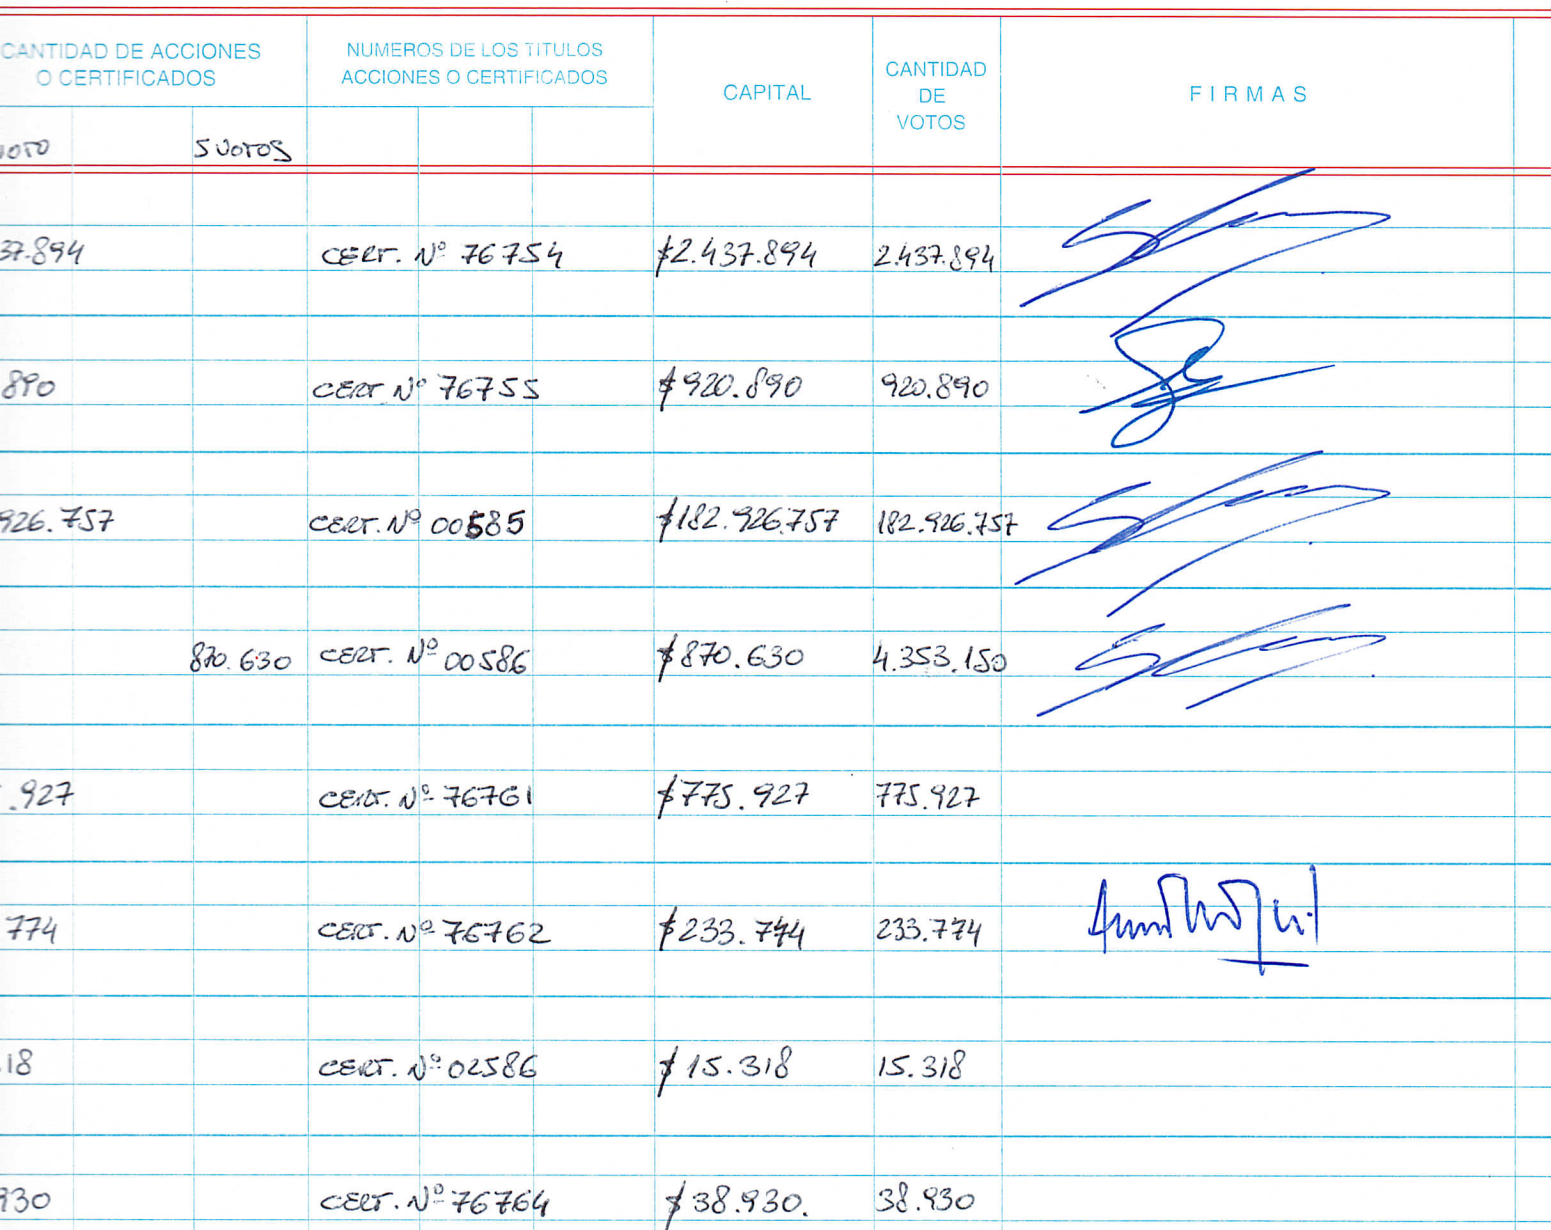 CANTIDAD DE ACCIONES
O CERTIFICADOS
NUMEROS DE LOS TITULOS
ACCIONES O CERTIFICADOS
CAPITAL
CANTIDAD
DE
VOTOS
FIRMAS
VOTO 5 VOTOS
37.894 CERT. Nº 76754 $2.437.894 2.437.894
890 CERT Nº 76755 $920.890 920.890
926.757 CERT. Nº 00585 $182.926.757 182.926.757
870.630 CERT. Nº 00586 $870.630 4.353.150
.927 CERT. Nº 76761 $775.927 775.927
774 CERT. Nº 76762 $233.774 233.774
.18 CERT. Nº 02586 $15.318 15.318
930 CERT. Nº 76764 $38.930. 38.930